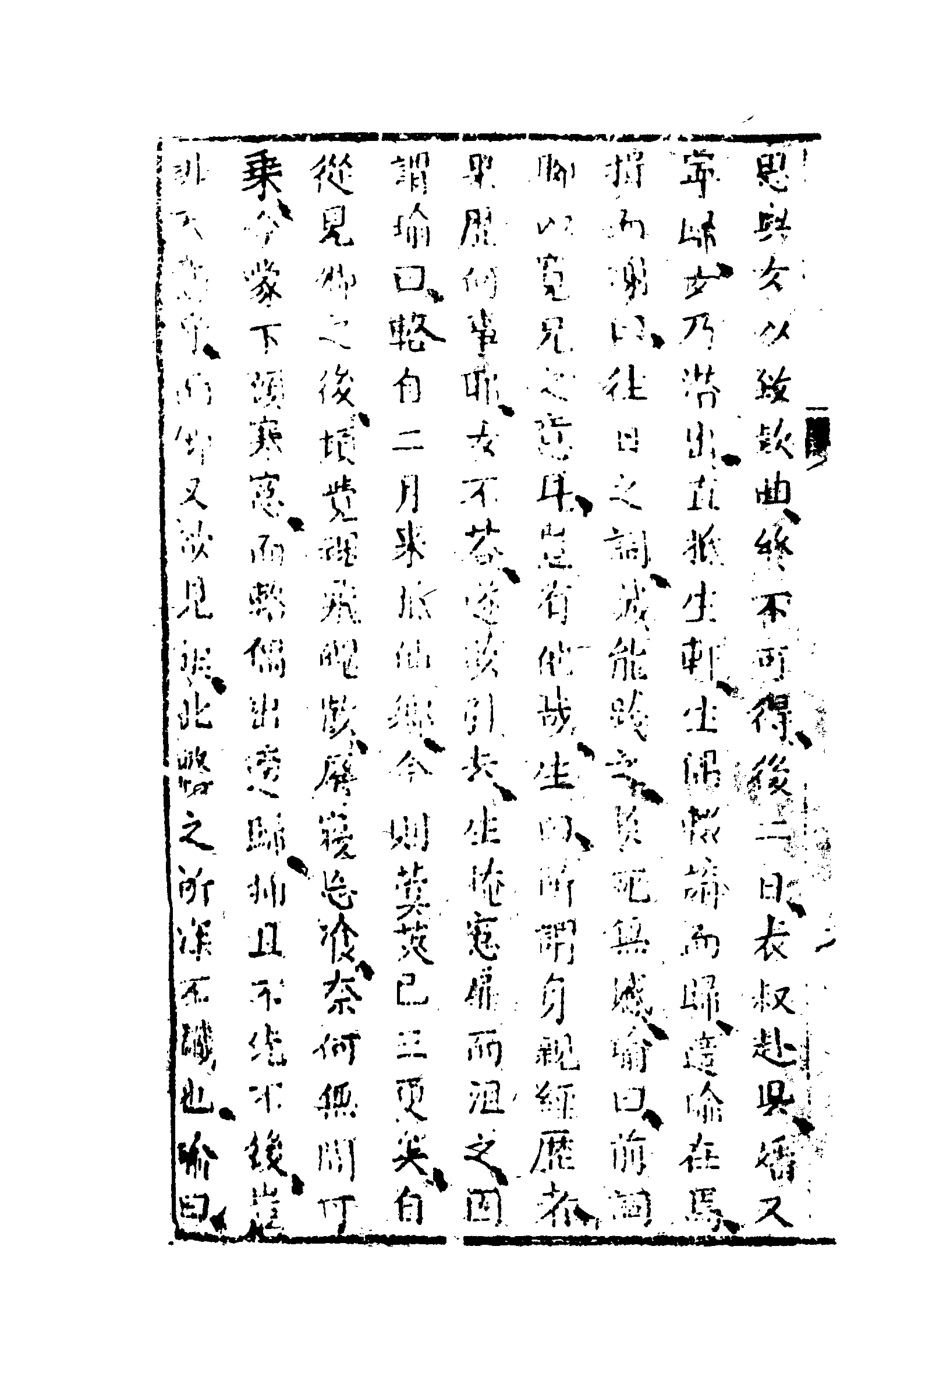 思與女以致款曲終不可得後二日表叔赴吳嬸又
寧歸女乃潛出直抵生軒生偶輟講而歸適瑜在焉
揖而謝曰往日之詞誠能踐之負死無憾瑜曰前詞
聊以寬兄之意耳豈有他哉生曰所謂身親經歷者
果歷何事耶女不答遂欲引去生掩窓扉而沮之因
謂瑜曰輅自二月來抵仙鄉今則蓂莢已三更矣自
從見卿之後頃覺魂飛魄散廢寢忘飧奈何無間可
乘今蒙下顧寒窓而轄偶出遽歸揣且不先不後豈
非天意乎而卿又欲見拒此輅之所深不識也瑜曰